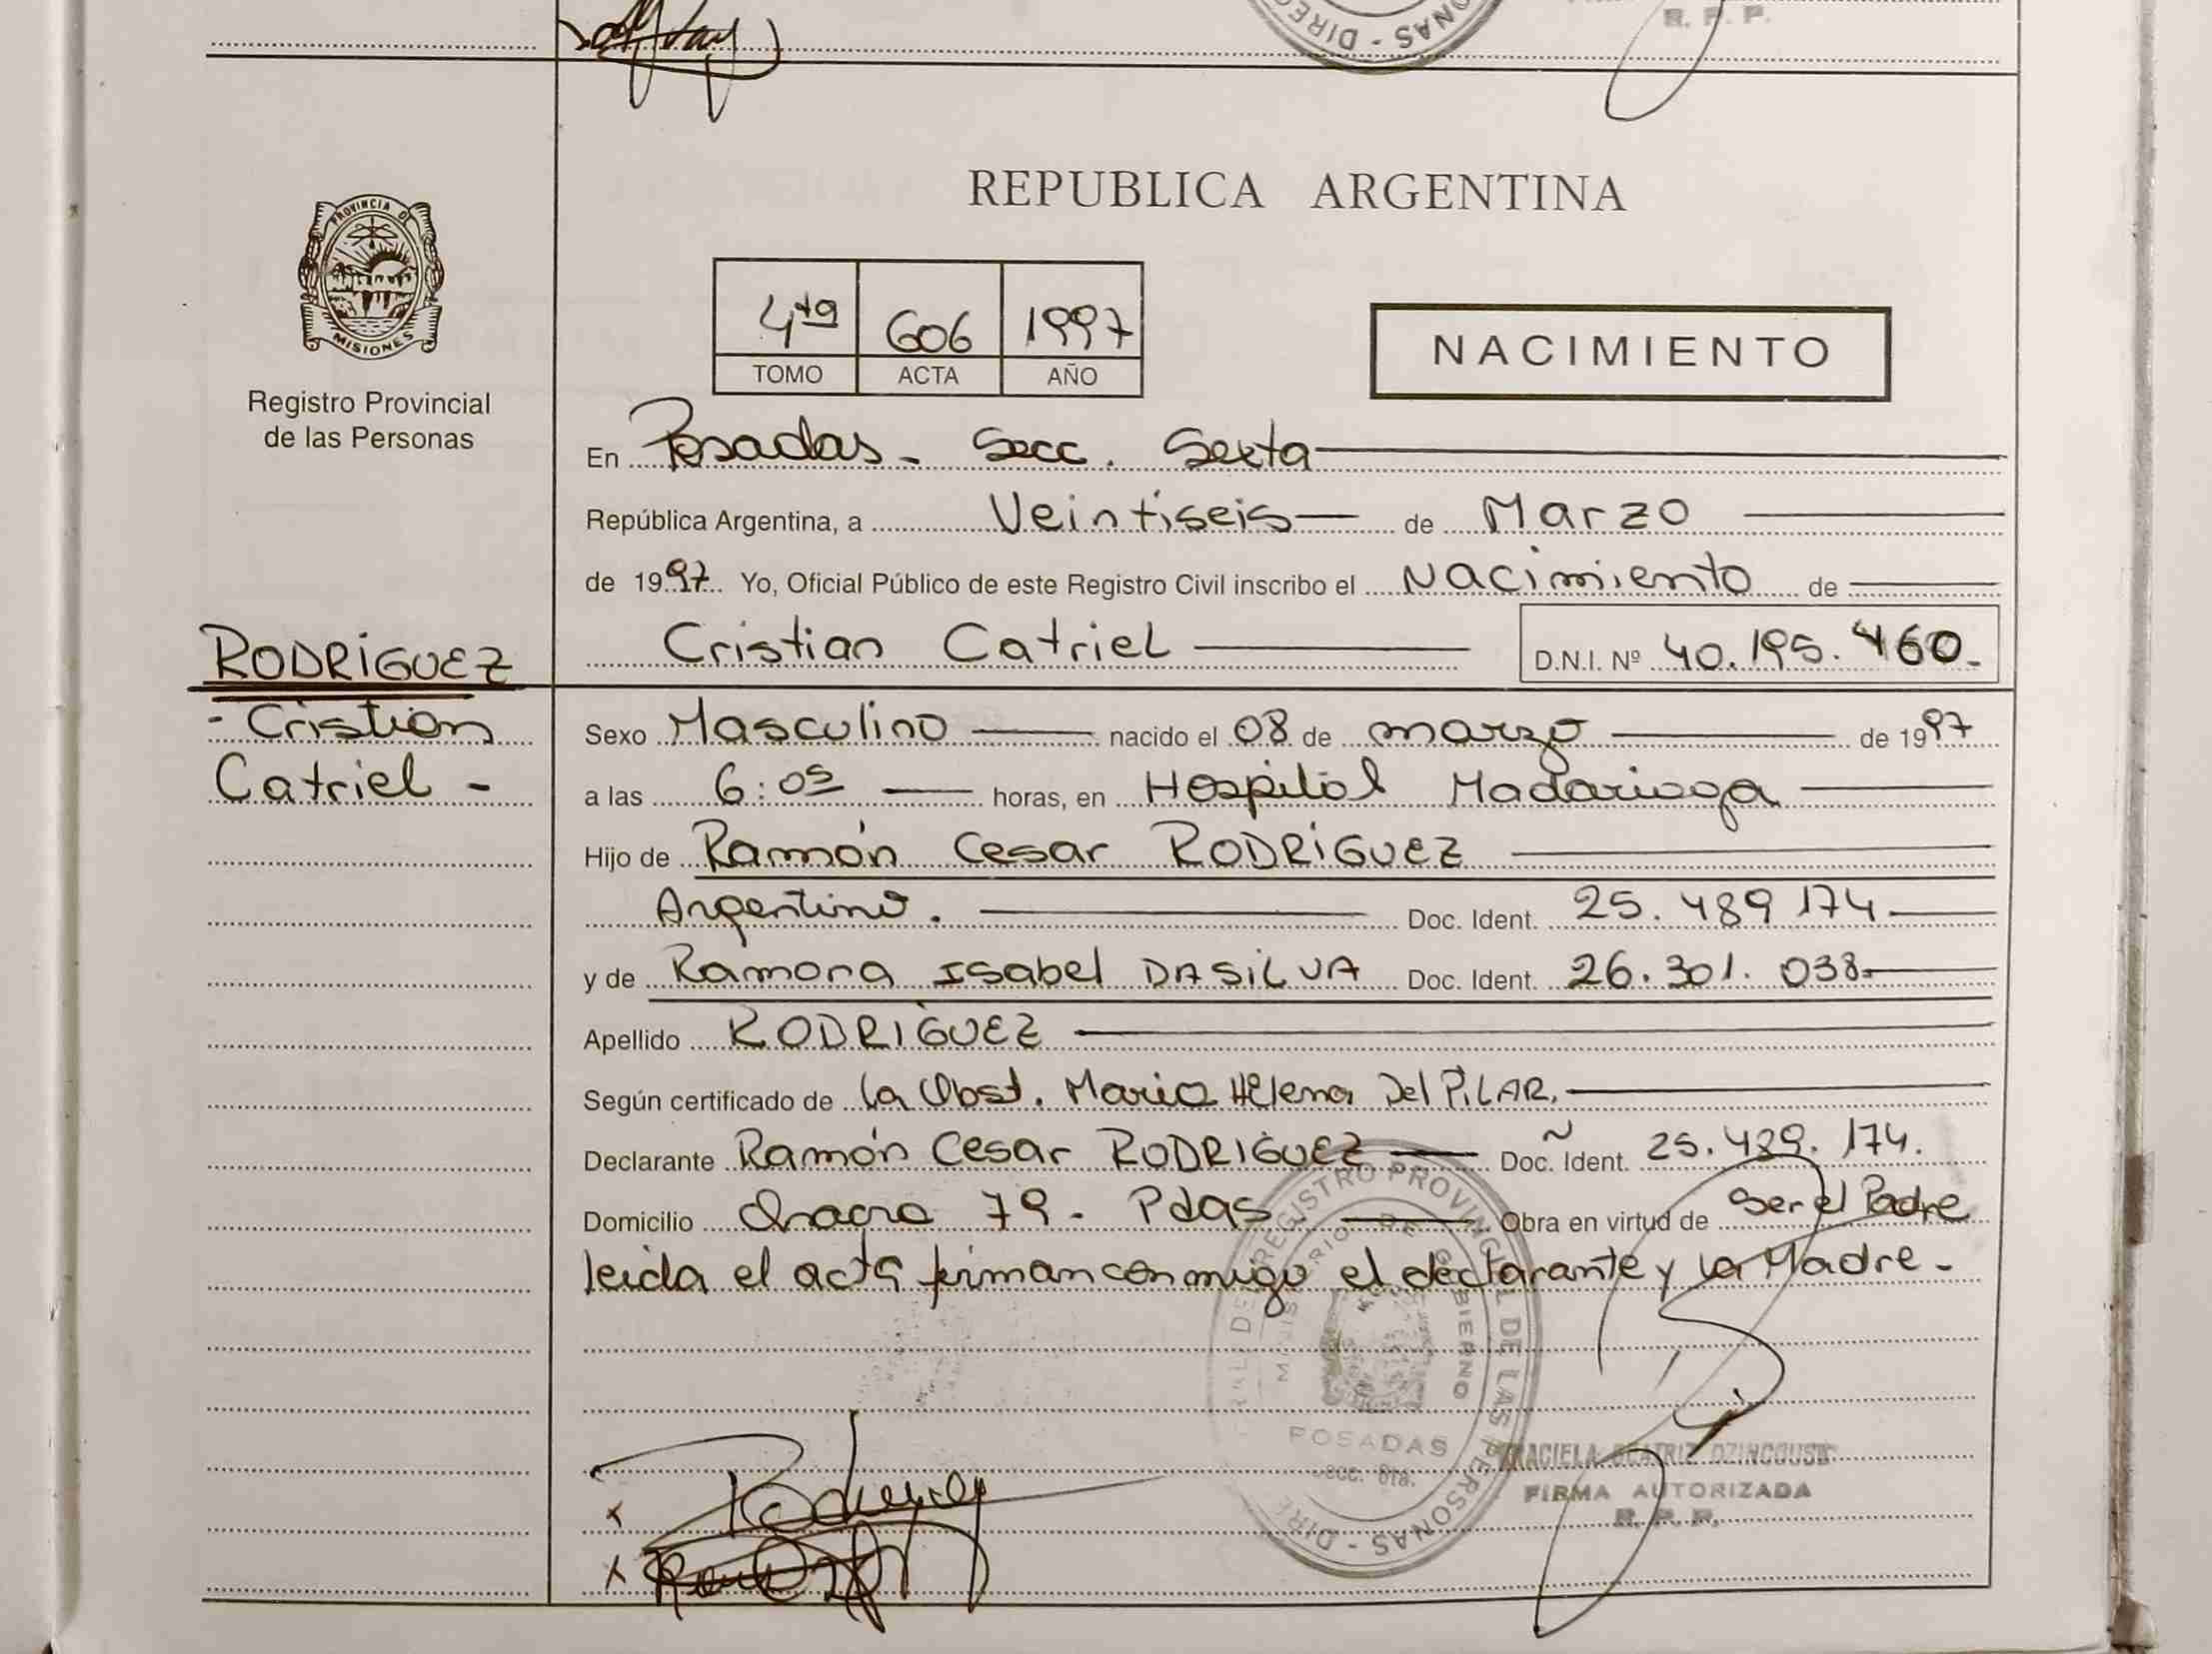 R. P. P.
REPUBLICA ARGENTINA
PROVINCIA D
MISIONES
Registro Provincial
de las Personas
4to 606 1997
TOMO ACTA AÑO
NACIMIENTO
En Posadas - Secc. Sexta
República Argentina, a Veintiseis de Marzo
de 1997 Yo, Oficial Público de este Registro Civil inscribo el Nacimiento de
Cristian Catriel D.N.I. Nº 40.195.460.-
RODRÍGUEZ
- Cristian
Catriel -
Sexo Masculino nacido el 08 de marzo de 1997
a las 6:05 horas, en Hospital Madariaga
Hijo de Ramón Cesar RODRÍGUEZ
Argentino. Doc. Ident. 25.489 174
y de Ramona Isabel DASILVA Doc. Ident. 26.301.038.
Apellido RODRÍGUEZ
Según certificado de la Obst. Maria Helena Del PILAR.
Declarante Ramón Cesar RODRÍGUEZ Doc. Ident. 25.489.174.
Domicilio Chacra 79 - Pdas Obra en virtud de Ser el Padre
leida el acta firman conmigo el declarante y la Madre -
REGISTRO PROVINCIAL DE LAS PERSONAS - DIRE
GOBIERNO
POSADAS
Secc. 6ta.
GRACIELA BEATRIZ DZINCOUSE
FIRMA AUTORIZADA
R. P. P.